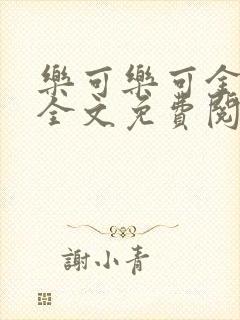 樂可樂可全
全文免費閱
謝小青